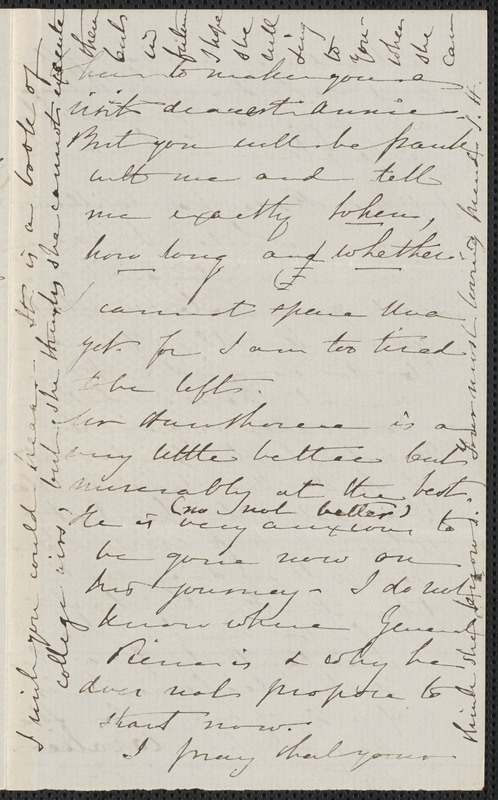 her to make you a
visit dearest Annie.
But you will be frank
with me and tell
me exactly when,
how long and whether.
I cannot spare Una
yet for I am too tired
to be left.
Mr Hawthorne is a
very little better but
miserably at the best.
(no not better)
He is very anxious to
be gone now on
his journey. I do not
know where General
Pierce is & why he
does not propose to
start now.
I pray that your
I wish you could hear. It is a book of
college airs, but she thinks she cannot execute
them
but
in
I hope
she
will
sing
to
you
when
she
can
think she knows. Your most loving friend S. H.